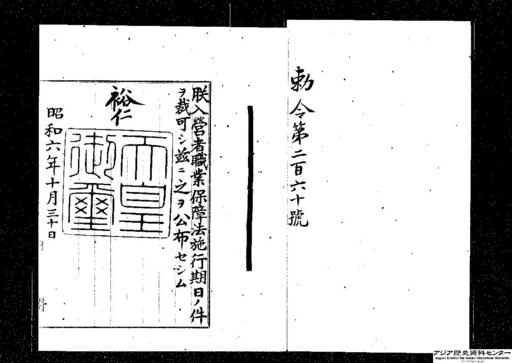 勅令第二百六十號
朕入營者職業保障法施行期日ノ件
ヲ裁可シ茲ニ之ヲ公布セシム
裕仁
天皇
御璽
昭和六年十月三十日
アジア歴史資料センター
Japan Center for Asian Historical Records